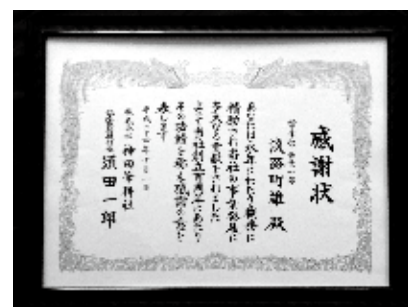 感謝状
淡路町雄 殿
あなたは永年にわたり職務に
精励され当社の事業発展に
多大なる貢献をされました
よって当社創立 周年にあたり
その功績を称え感謝の意を
表します
平成 十四年十月一日
株式会社 神田筆耕社
須田一郎